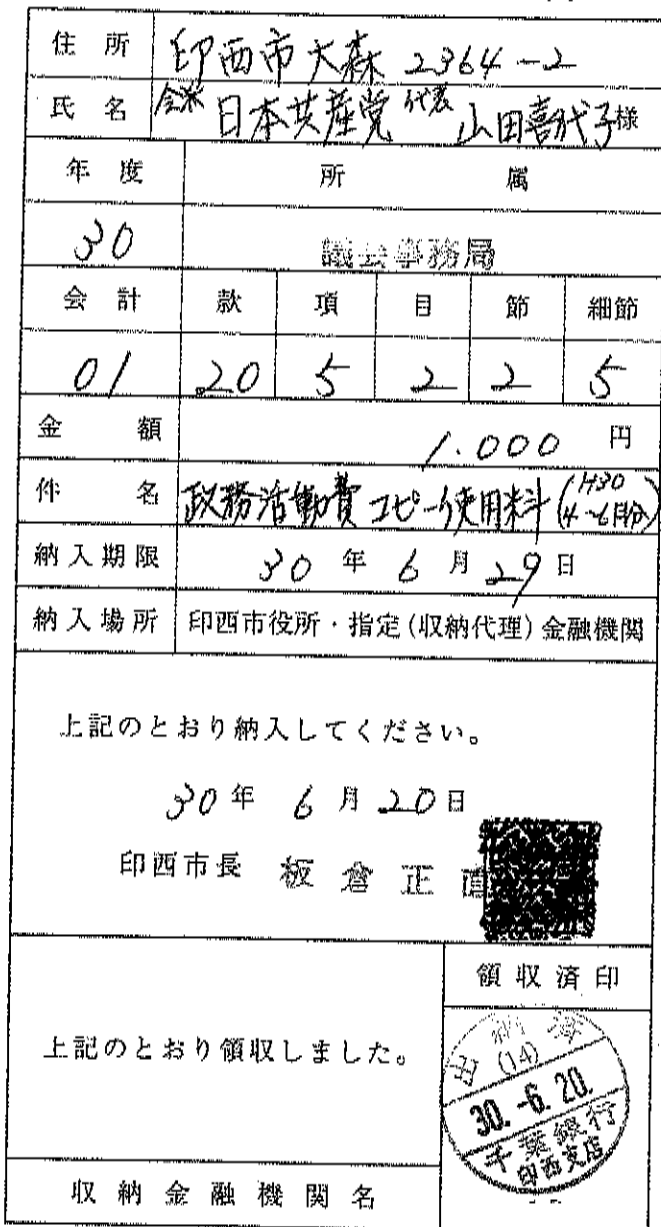 住所 印西市大森 2364-2
氏名 会派 日本共産党 代表 山田喜代子様
年度 所属
30 議会事務局
会計 款 項 目 節 細節
01 20 5 2 2 5
金額 1.000 円
件名 政務活動費 コピー使用料 (H30 4~6月分)
納入期限 30 年 6 月 29 日
納入場所 印西市役所・指定(収納代理)金融機関
上記のとおり納入してください。
30 年 6 月 20 日
印西市長 板倉正直
領収済印
上記のとおり領収しました。
出納済
(14)
30.-6.20.
千葉銀行
印西支店
収納金融機関名